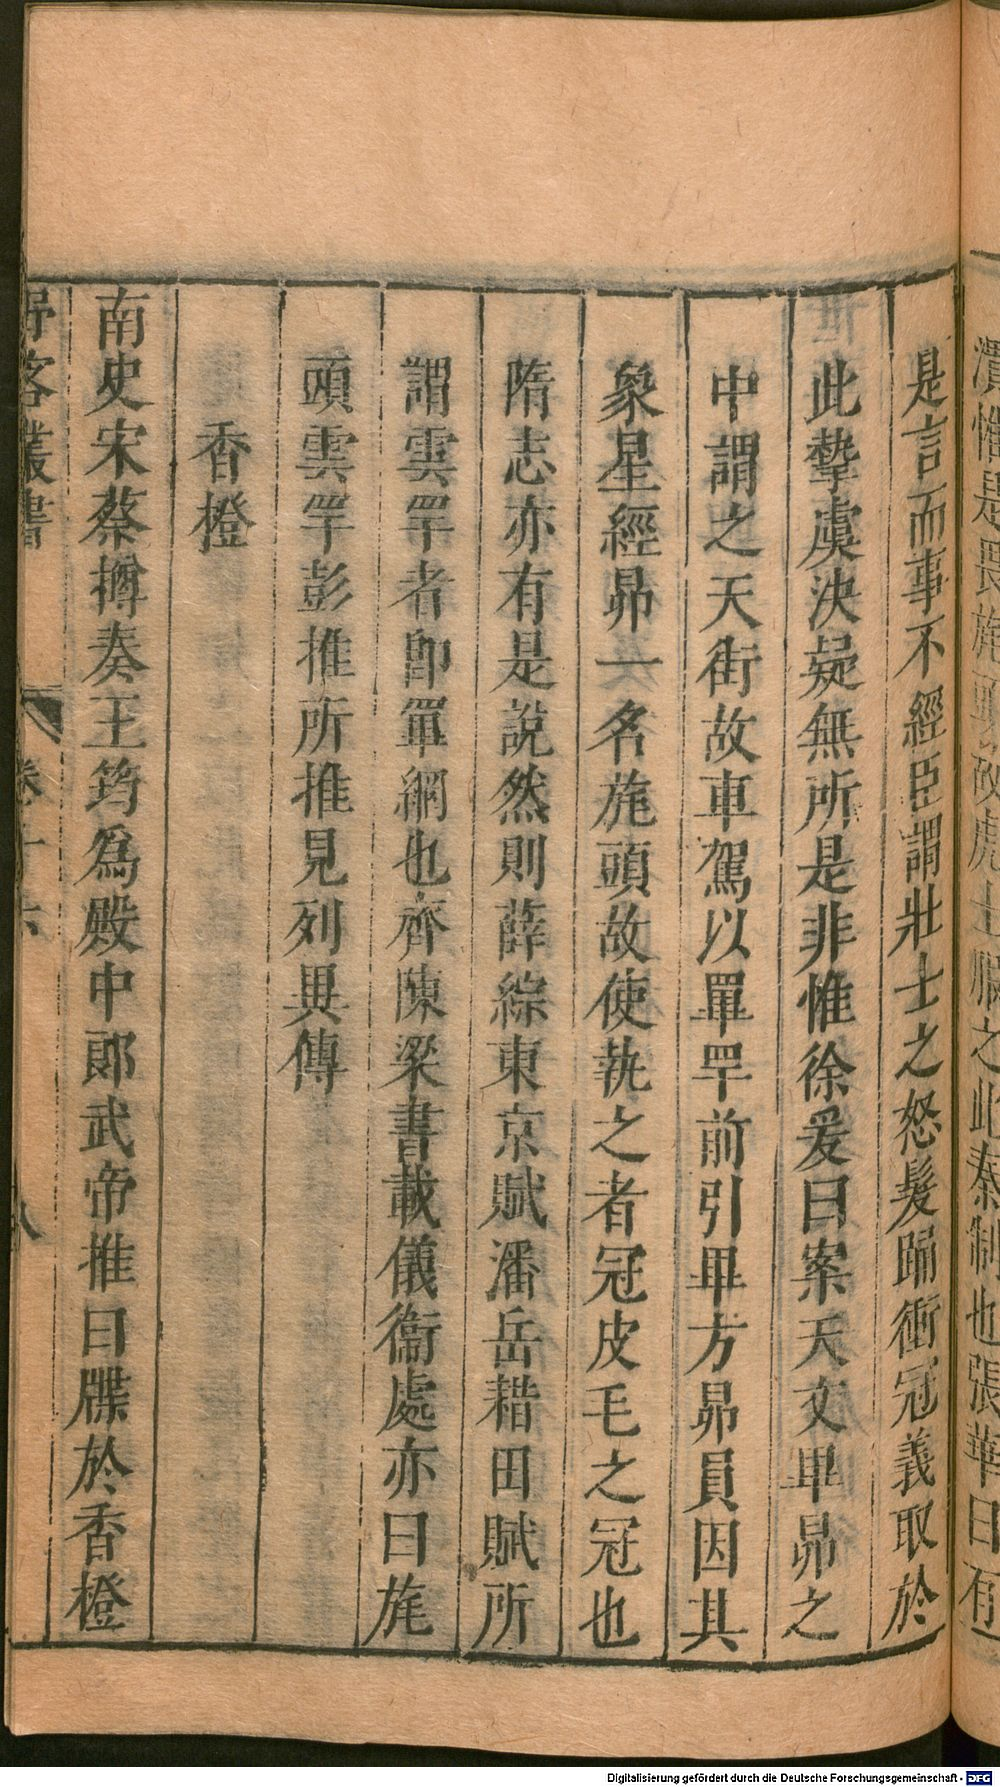 潰惟是畏旄頭故虎士服之此秦制也張華曰有
是言而事不經臣謂壯士之怒髮踊衝冠義取於
此摯虞決疑無所是非惟徐爰曰案天文畢昴之
中謂之天街故車駕以罼罕前引畢方昴員因其
象星經昴一名旄頭故使執之者冠皮毛之冠也
隋志亦有是說然則薛綜東京賦潘岳耤田賦所
謂雲罕者卽罼網也齊陳梁書載儀衞處亦曰旄
頭雲罕彭推所推見列異傳
香橙
南史宋蔡撙奏王筠爲殿中郎武帝推曰牒於香橙
野客叢書
卷十六
八
Digitalisierung gefördert durch die Deutsche Forschungsgemeinschaft - DFG